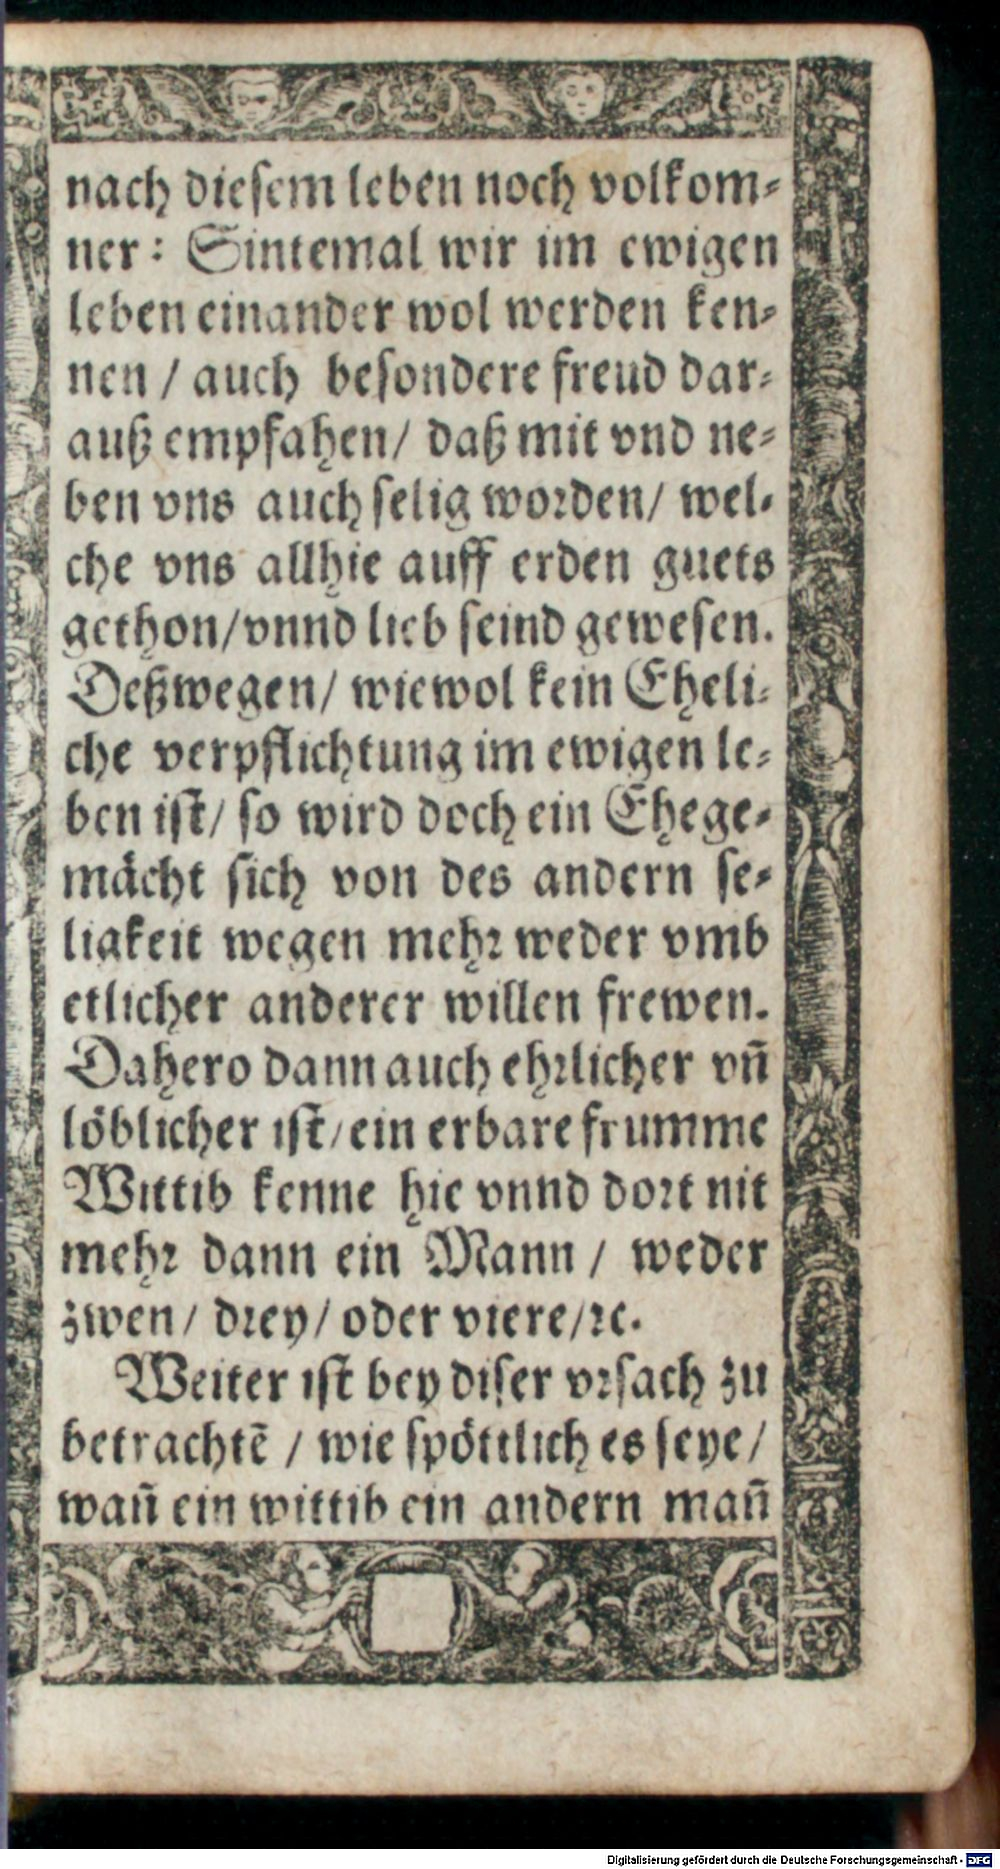 nach diesem leben noch volkom⸗
ner: Sintemal wir im ewigen
leben einander wol werden ken⸗
nen / auch besondere freud dar⸗
auß empfahen/ daß mit vnd ne⸗
ben vns auch selig worden/ wel⸗
che vns allhie auff erden guets
gethon/vnnd lieb seind gewesen.
Deßwegen/ wiewol kein Eheli⸗
che verpflichtung im ewigen le⸗
ben ist/ so wird doch ein Ehege⸗
mächt sich von des andern se⸗
ligkeit wegen mehr weder vmb
etlicher anderer willen frewen.
Dahero dann auch ehrlicher vñ
löblicher ist/ein erbare frumme
Wittib kenne hie vnnd dort nit
mehr dann ein Mann / weder
zwen/ drey/ oder viere/ꝛc.
Weiter ist bey diser vrsach zu
betrachtẽ / wie spöttlich es seye/
wañ ein wittib ein andern mañ
Digitalisierung gefördert durch die Deutsche Forschungsgemeinschaft - DFG